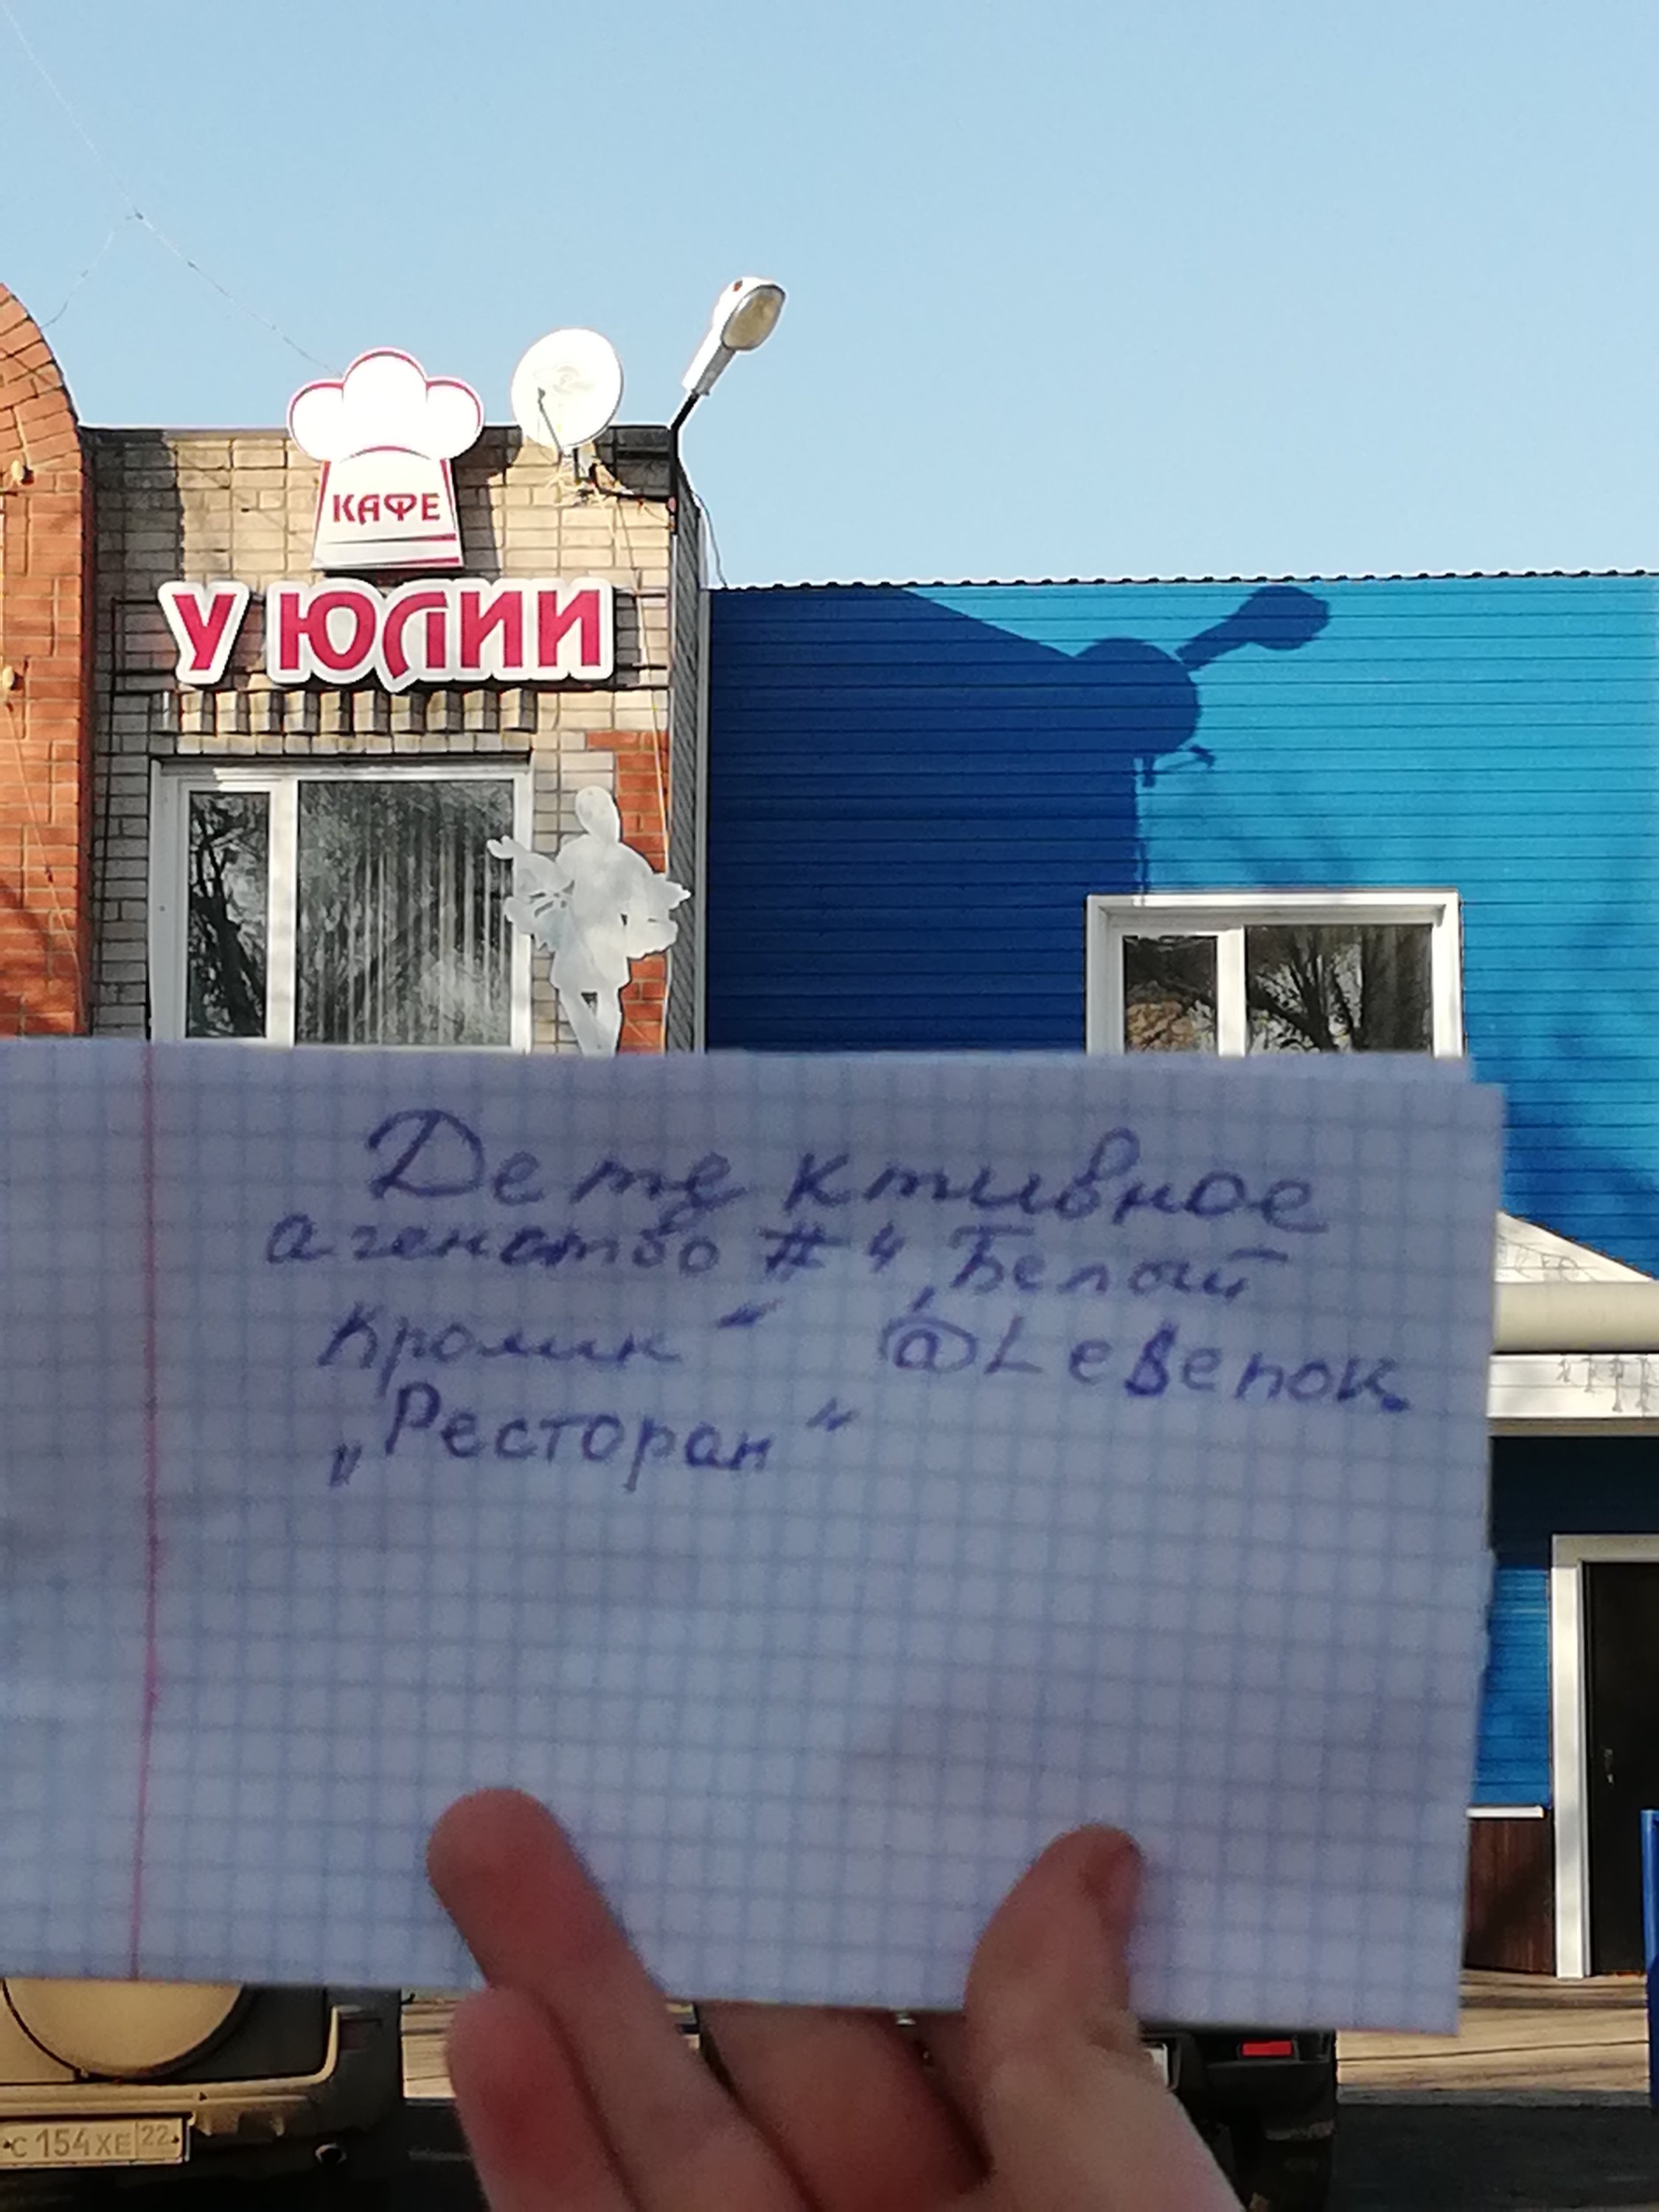 КАФЕ
У ЮЛИИ
Детективное
агенство #4 „Белый
Кролик“ @Levenok
„Ресторан“
с 154 ХЕ 22